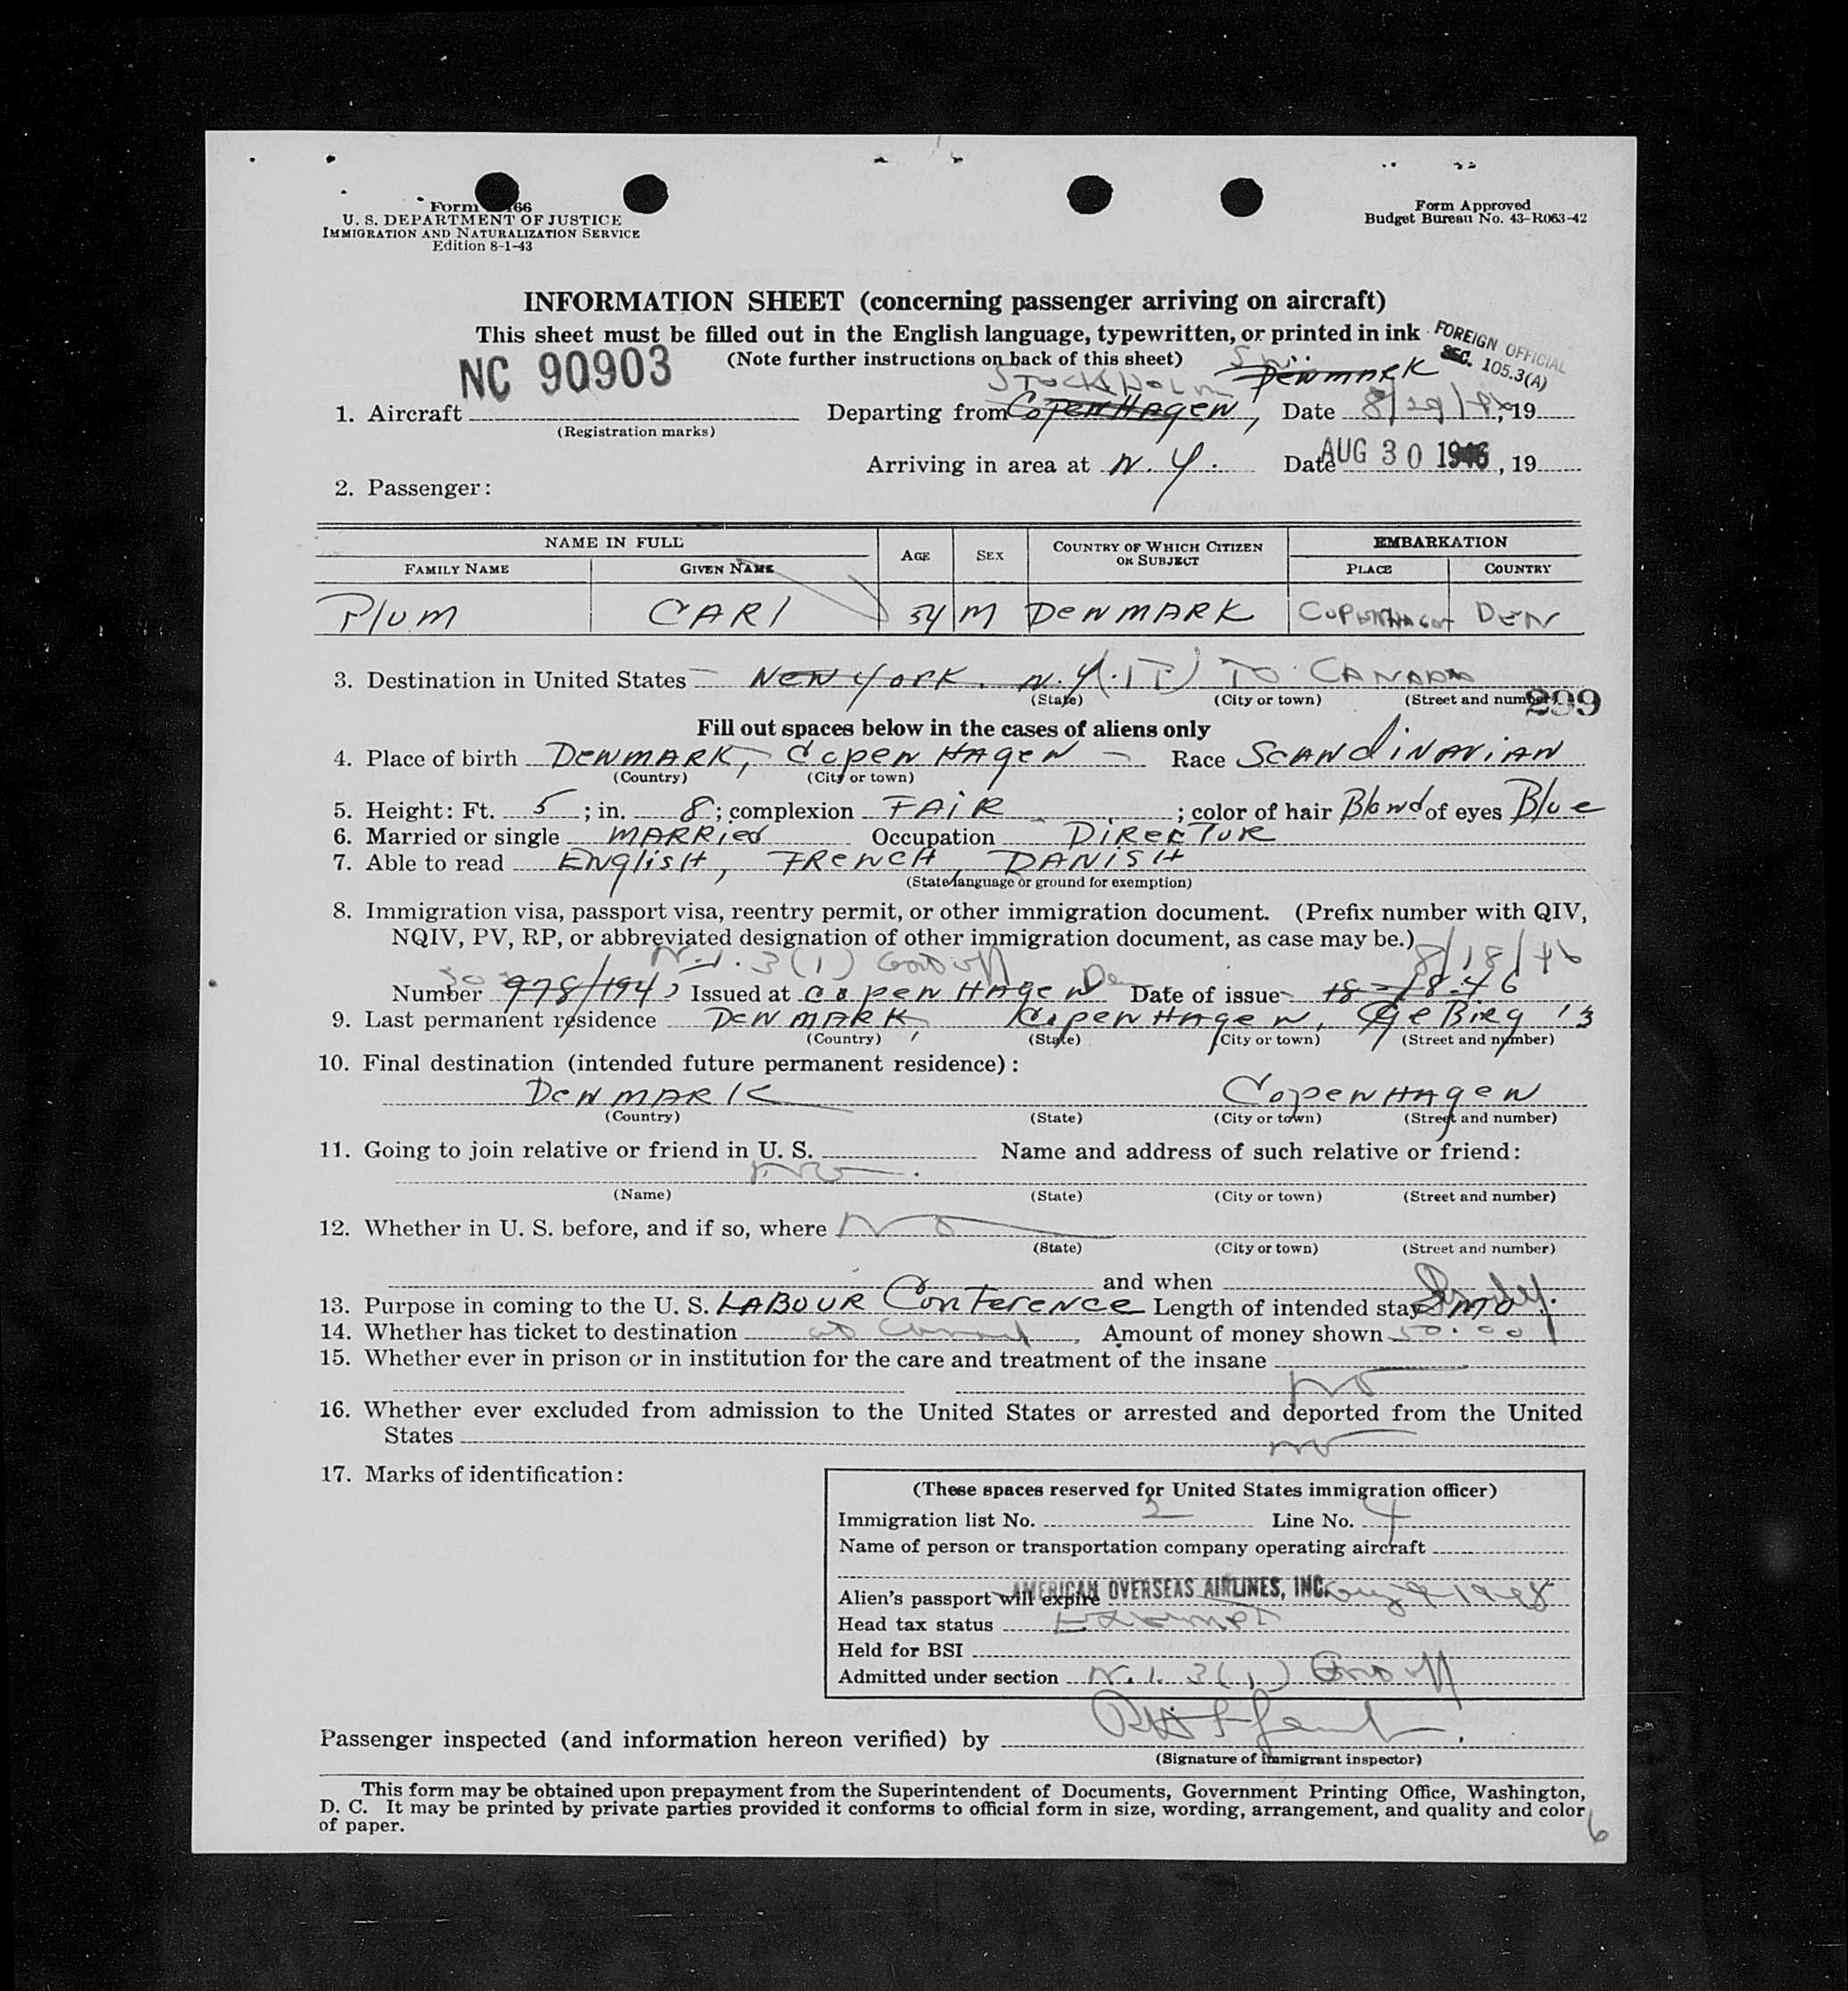 Form 66
U. S. DEPARTMENT OF JUSTICE
IMMIGRATION AND NATURALIZATION SERVICE
Edition 8-1-43
Form Approved
Budget Bureau No. 43-R063-42
INFORMATION SHEET (concerning passenger arriving on aircraft)
This sheet must be filled out in the English language, typewritten, or printed in ink
FOREIGN OFFICIAL
SEC. 105.3(A)
(Note further instructions on back of this sheet)
NC 90903
STOCKHOLM DENMARK
1. Aircraft Departing from COPENHAGEN, Date 8/29/46, 19
(Registration marks)
Arriving in area at N.Y. Date AUG 30 1946, 19
2. Passenger:
NAME IN FULL AGE SEX COUNTRY OF WHICH CITIZEN OR SUBJECT EMBARKATION
FAMILY NAME GIVEN NAME PLACE COUNTRY
Plum CARl 54 M DENMARK COPENHAGEN DEN
3. Destination in United States NEW YORK. N.Y. (IT) TO CANADA
(State) (City or town) (Street and number)
299
Fill out spaces below in the cases of aliens only
4. Place of birth DENMARK, COPENHAGEN Race SCANDINAVIAN
(Country) (City or town)
5. Height: Ft. 5; in. 8; complexion FAIR; color of hair Blond of eyes Blue
6. Married or single MARRIED Occupation DIRECTOR
7. Able to read ENGLISH, FRENCH, DANISH
(State language or ground for exemption)
8. Immigration visa, passport visa, reentry permit, or other immigration document. (Prefix number with QIV,
NQIV, PV, RP, or abbreviated designation of other immigration document, as case may be.)
N.I. 3(1) Gov Off 8/18/46
Number 978/194 Issued at COPENHAGEN Den Date of issue 18-18-46
9. Last permanent residence DENMARK, COPENHAGEN, 13
(Country) (State) (City or town) (Street and number)
10. Final destination (intended future permanent residence):
DENMARK COPENHAGEN
(Country) (State) (City or town) (Street and number)
11. Going to join relative or friend in U. S. Name and address of such relative or friend:
NO.
(Name) (State) (City or town) (Street and number)
12. Whether in U. S. before, and if so, where NO
(State) (City or town) (Street and number)
and when
13. Purpose in coming to the U. S. LABOUR CONFERENCE Length of intended stay MTO
14. Whether has ticket to destination Amount of money shown 50.00
15. Whether ever in prison or in institution for the care and treatment of the insane
NO
16. Whether ever excluded from admission to the United States or arrested and deported from the United
States NO
17. Marks of identification:
(These spaces reserved for United States immigration officer)
Immigration list No. 2 Line No. 4
Name of person or transportation company operating aircraft
AMERICAN OVERSEAS AIRLINES, INC.
Alien's passport will expire Aug 9 1948
Head tax status EXEMPT
Held for BSI
Admitted under section N.I. 3(1) Gov Off
Passenger inspected (and information hereon verified) by
(Signature of immigrant inspector)
This form may be obtained upon prepayment from the Superintendent of Documents, Government Printing Office, Washington,
D. C. It may be printed by private parties provided it conforms to official form in size, wording, arrangement, and quality and color
of paper.
6